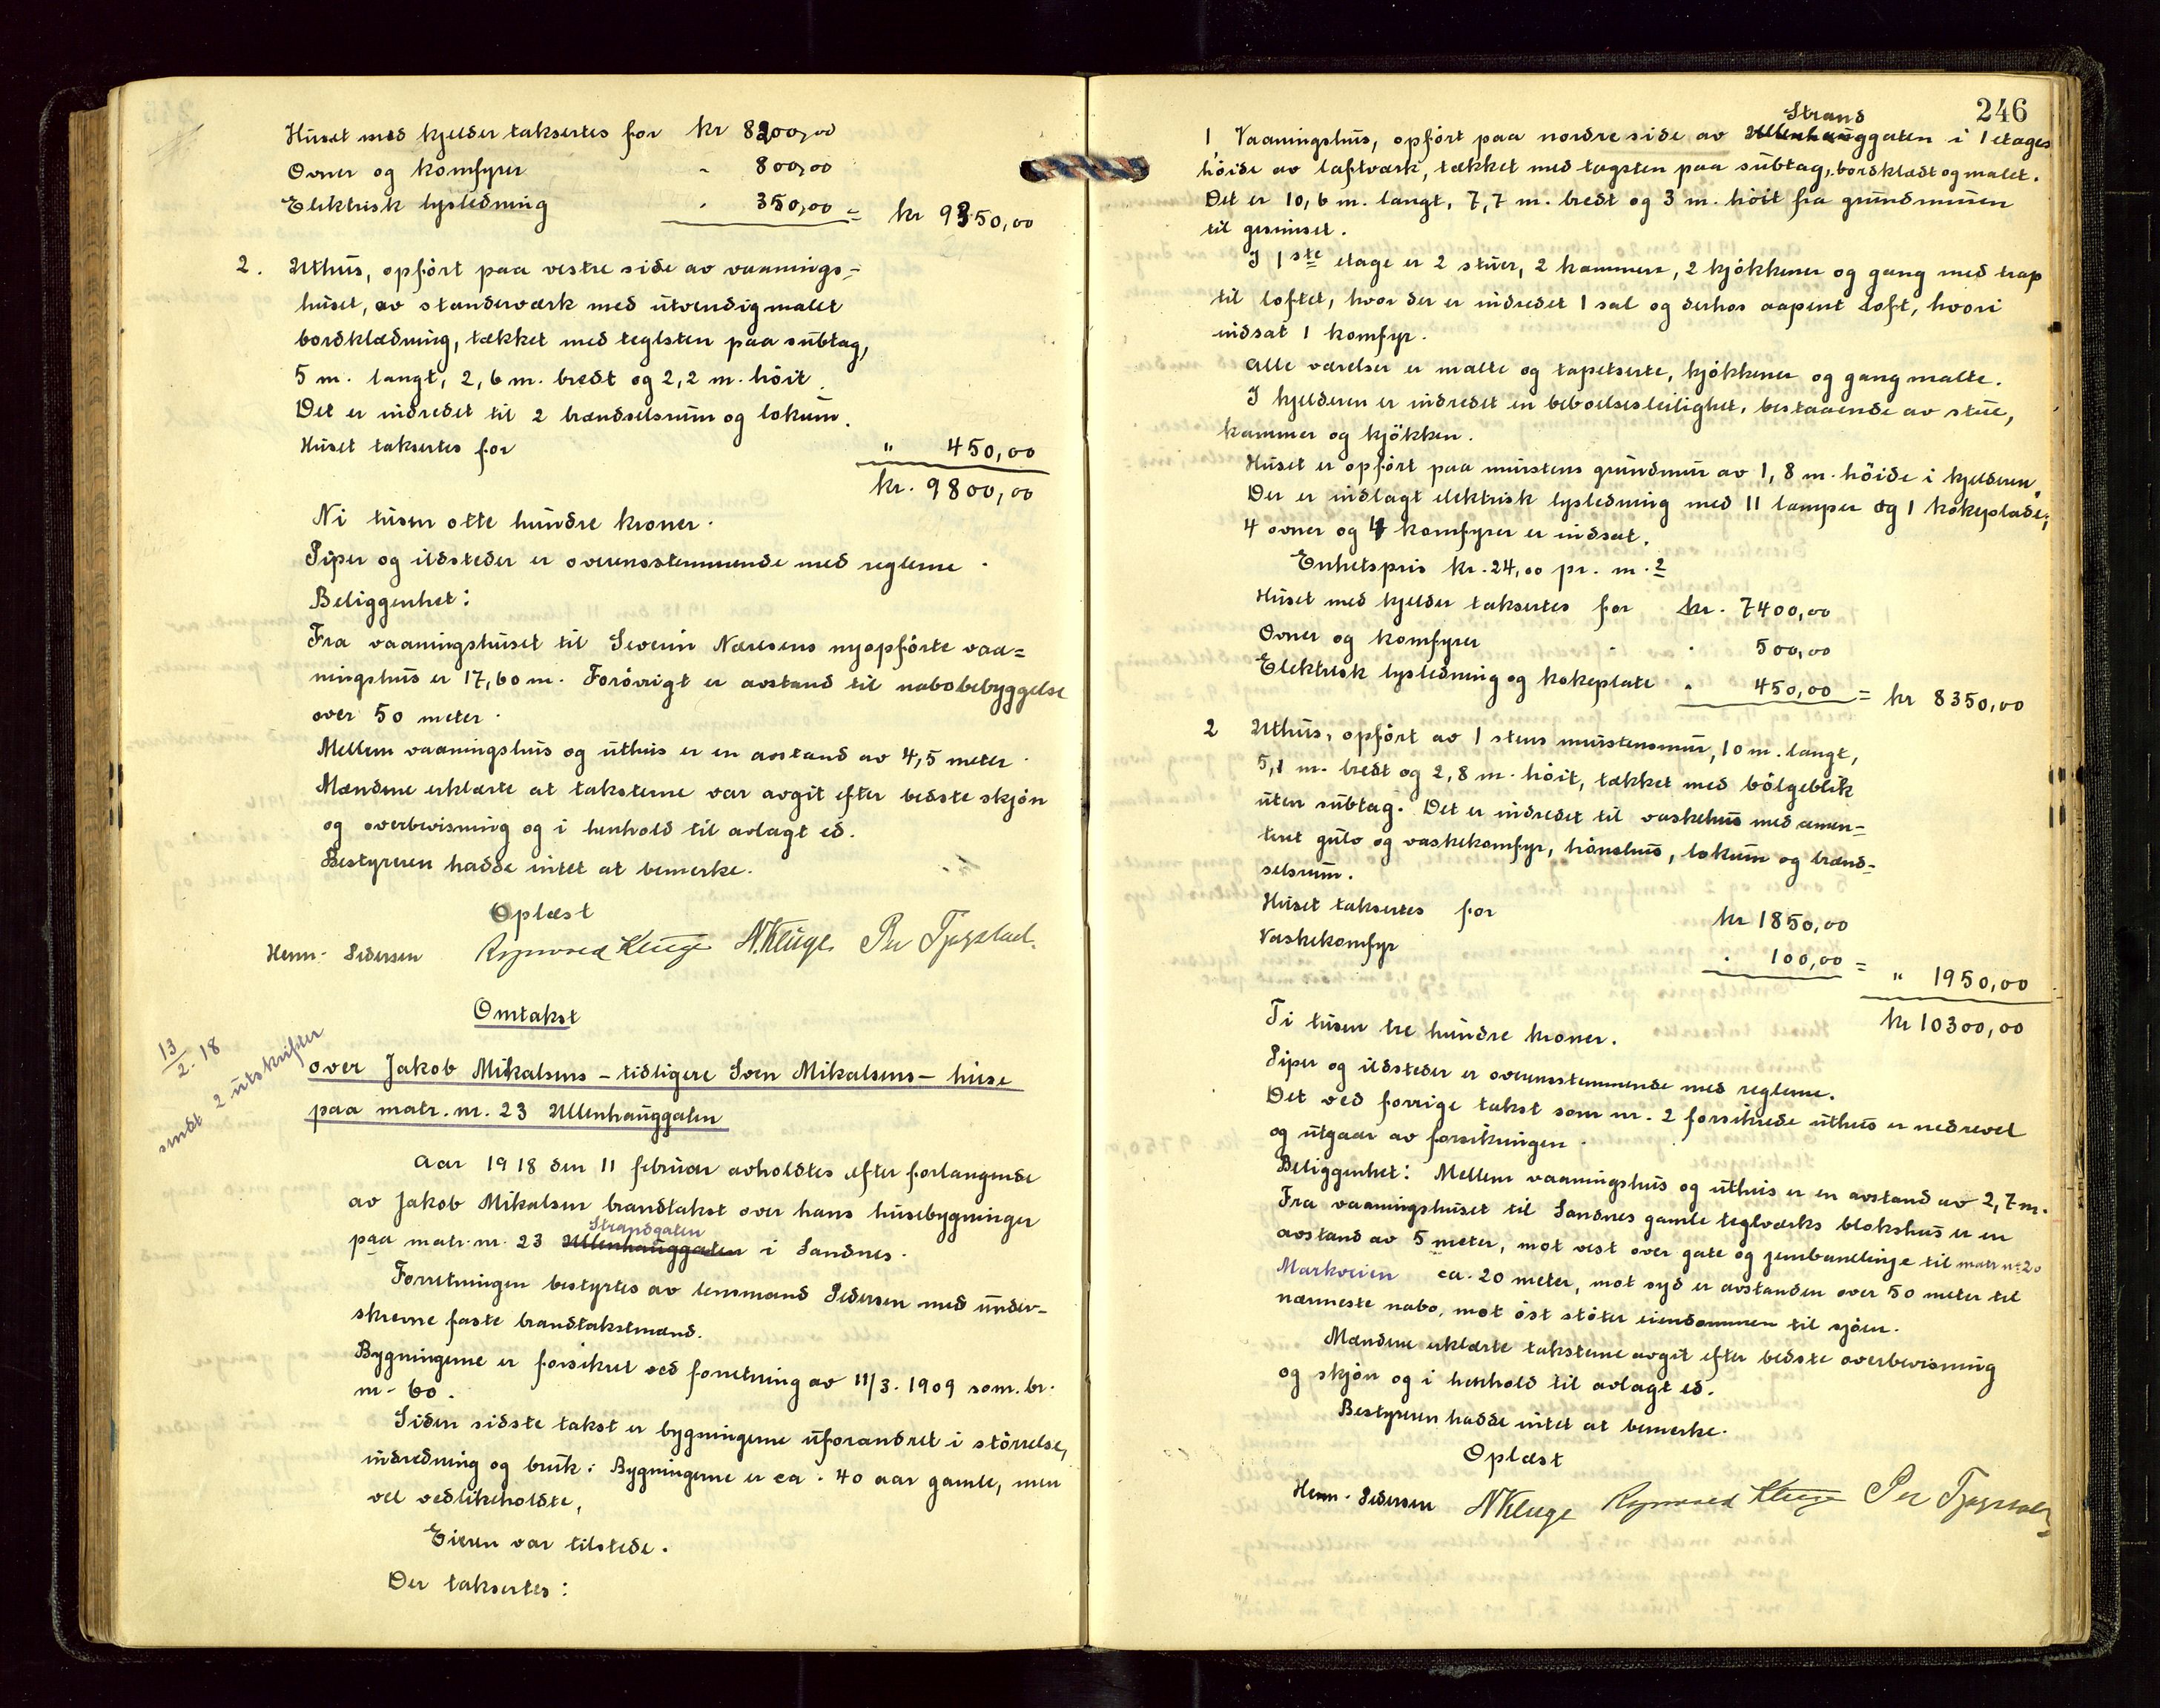 Huset med kjelder taksertes for kr 8200,00
Ovner og komfyrer " 800,00
Elektrisk lysledning " 350,00 = kr 9350,00
2. Uthus, opført paa vestre side av vaanings-
huset, av standerværk med utvendig malet
bordklædning, tækket med teglsten paa subtag,
5 m. langt, 2,6 m. bredt og 2,2 m. høit.
Det er indredet til 2 brændselsrum og lokum.
Huset taksertes for " 450,00
kr. 9800,00
Ni tusen otte hundre kroner.
Piper og ildsteder er overensstemmende med reglerne.
Beliggenhet:
Fra vaaningshuset til Severin Næresens nyopførte vaa=
ningshus er 17,60 m. Forøvrigt er avstand til nabobebyggelse
over 50 meter.
Mellem vaaningshus og uthus er en avstand av 4,5 meter.
Mændene erklærte at taksterne var avgit efter bedste skjøn
og overbevisning og i henhold til avlagt ed.
Bestyreren hadde intet at bemerke.
Oplæst
Henr. Pedersen Rasmus Kluge N Kluge Per Tjøgstad
Omtakst
13/2-18 sendt 2 utskrifter
over Jakob Mikalsens - tidligere Sven Mikalsens - huse
paa matr. nr. 23 Ullenhauggaten
Aar 1918 den 11 februar avholdtes efter forlangende
av Jakob Mikalsen brandtakst over hans husebygninger
Strandgaten
paa matr. nr. 23 Ullenhauggaten i Sandnes.
Forretningen bestyrtes av lensmand Pedersen med under-
skrevne faste brandtakstmænd.
Bygningerne er forsikret ved forretning av 11/3. 1909 som. br.
nr - 60.
Siden sidste takst er bygningerne uforandret i størrelse,
indredning og bruk. Bygningerne er ca. 40 aar gamle, men
vel vedlikeholdte,
Eieren var tilstede.
Der taksertes:
246
Strand
1, Vaaningshus, opført paa nordre side av Ullenhauggaten i 1 etages
høide av laftværk, tækket med tagsten paa subtag, bordklædt og malet.
Det er 10,6 m. langt, 7,7 m. bredt og 3 m. høit fra grundmuren
til gesimset.
I 1ste etage er 2 stuer, 2 kammere, 2 kjøkkener og gang med trap
til loftet, hvor der er indredet 1 sal og derhos aapent loft, hvori
indsat 1 komfyr.
Alle værelser er malte og tapetserte, kjøkkener og gang malte.
I kjelderen er indredet en beboelsesleilighet, bestaaende av stue,
kammer og kjøkken.
Huset er opført paa murstens grundmur av 1,8 m. høide i kjelderen.
Der er indlagt elektrisk lysledning med 11 lamper og 1 kokeplade;
4 ovner og 4 komfyrer er indsat.
Enhetspris kr. 24,00 pr. m.2
Huset med kjelder taksertes for kr. 7400,00
Ovner og komfyrer " 500,00
Elektrisk lysledning og kokeplate " 450,00 = kr 8350,00
2 Uthus, opført av 1 stens murstensmur, 10 m. langt,
5,1 m. bredt og 2,8 m. høit, tækket med bølgeblik
uten subtag. Det er indredet til vaskehus med cemen-
teret gulv og vaskekomfyr, hønehus, lokum og brænd-
selsrum.
Huset taksertes for kr 1850,00
Vaskekomfyr " 100,00 = " 1950,00
kr 10300,00
Ti tusen tre hundre kroner.
Piper og ildsteder er overensstemmende med reglerne.
Det ved forrige takst som nr. 2 forsikrede uthus er nedrevet
og utgaar av forsikringen.
Beliggenhet: Mellem vaaningshus og uthus er en avstand av 2,7 m.
Fra vaaningshuset til Sandnes gamle teglværks blokshus er en
avstand av 5 meter, mot vest over gate og jernbanelinje til matr nr 20
Markveien ca. 20 meter, mot syd er avstanden over 50 meter til
nærmeste nabo, mot øst støter eiendommen til sjøen.
Mændene erklærte taksterne avgit efter bedste overbevisning
og skjøn og i henhold til avlagt ed.
Bestyreren hadde intet at bemerke.
Oplæst
Henr. Pedersen N Kluge Rasmus Kluge Per Tjøgstad